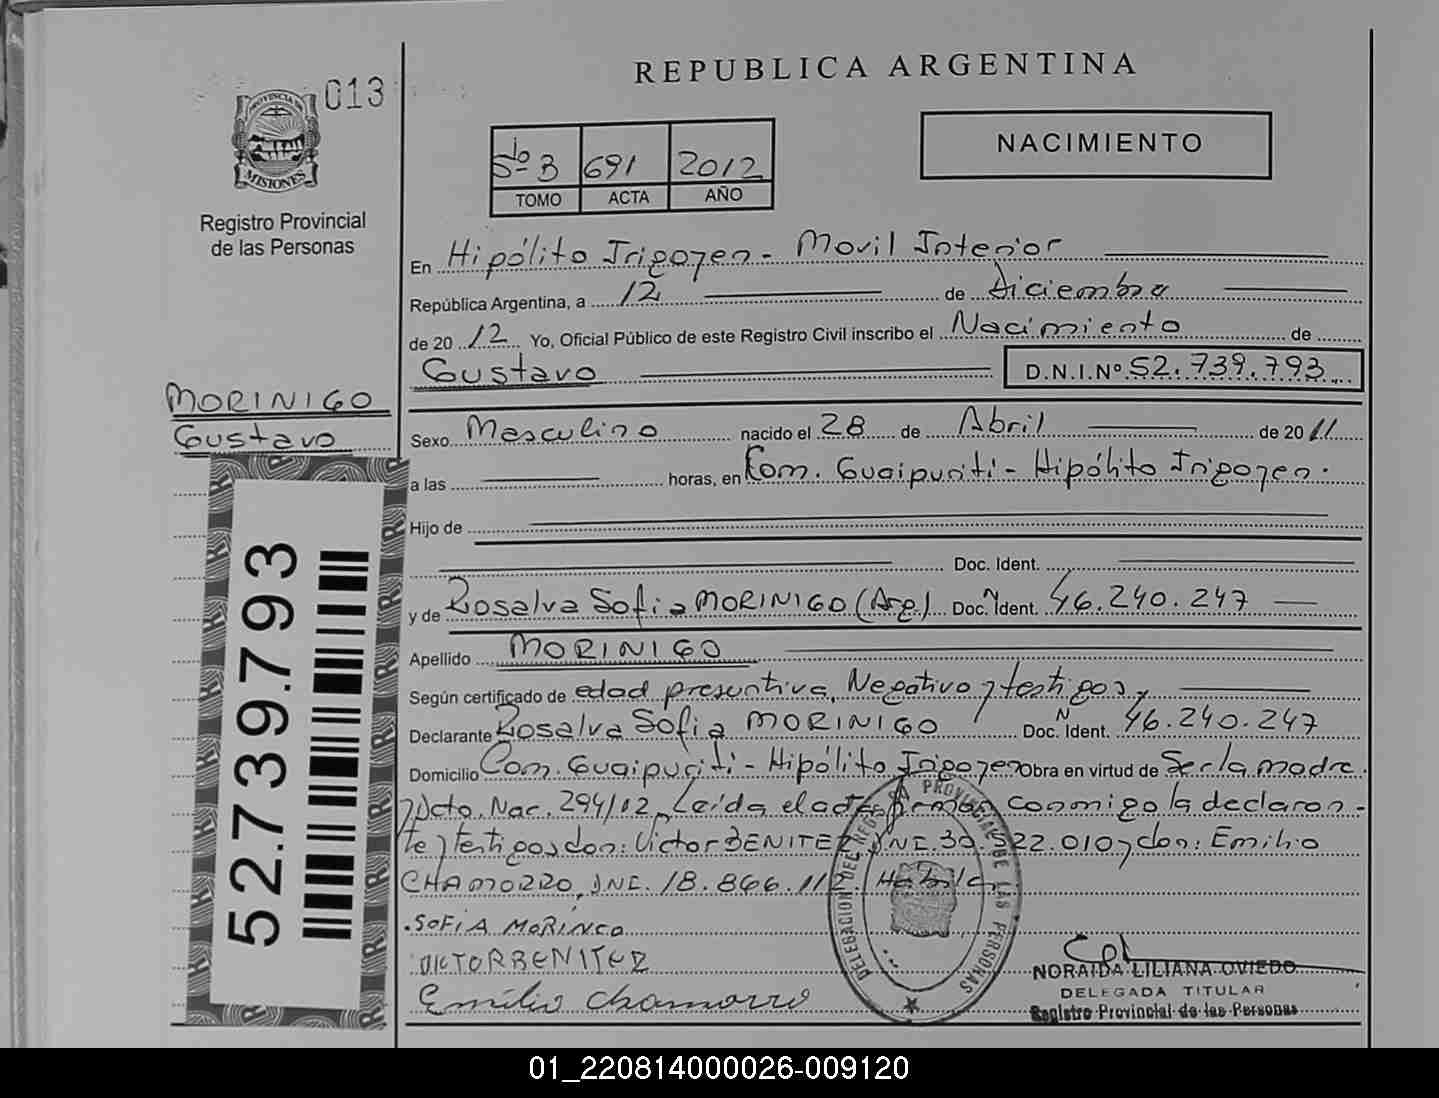 REPUBLICA ARGENTINA
013
PROVINCIA DE
MISIONES
Registro Provincial
de las Personas
Sº 3 691 2012
TOMO ACTA AÑO
NACIMIENTO
En Hipólito Irigoyen - Movil Interior
República Argentina, a 12 de Diciembre
de 2012 Yo, Oficial Público de este Registro Civil inscribo el Nacimiento de
Gustavo D.N.I.Nº 52.739.793
MORINIGO
Gustavo
Sexo Masculino nacido el 28 de Abril de 2011
a las horas, en Com. Guaipuriti - Hipólito Irigoyen.
Hijo de
Doc. Ident.
y de Rosalva Sofia MORINIGO (Arg) Doc. N Ident. 46.240.247
Apellido MORINIGO
Según certificado de edad presuntiva, Negativo y testigos,
Declarante Rosalva Sofia MORINIGO Doc. N Ident. 46.240.247
Domicilio Com. Guaipuriti - Hipólito Irigoyen Obra en virtud de Ser la madre
y Dcto. Nac. 294/02, Leída el acta firman conmigo la declaran-
te y testigos don: Victor BENITEZ DNI. 30. 22.010 y don: Emilio
CHAMORRO, DNI. 18.866.112.
SOFiA MORINCO
VICTOR BENITEZ
Emilio Chamorro
DELEGACION DEL REGISTRO PROVINCIAL DE LAS PERSONAS
NORAIDA LILIANA OVIEDO
DELEGADA TITULAR
Registro Provincial de las Personas
52.739.793
01_220814000026-009120